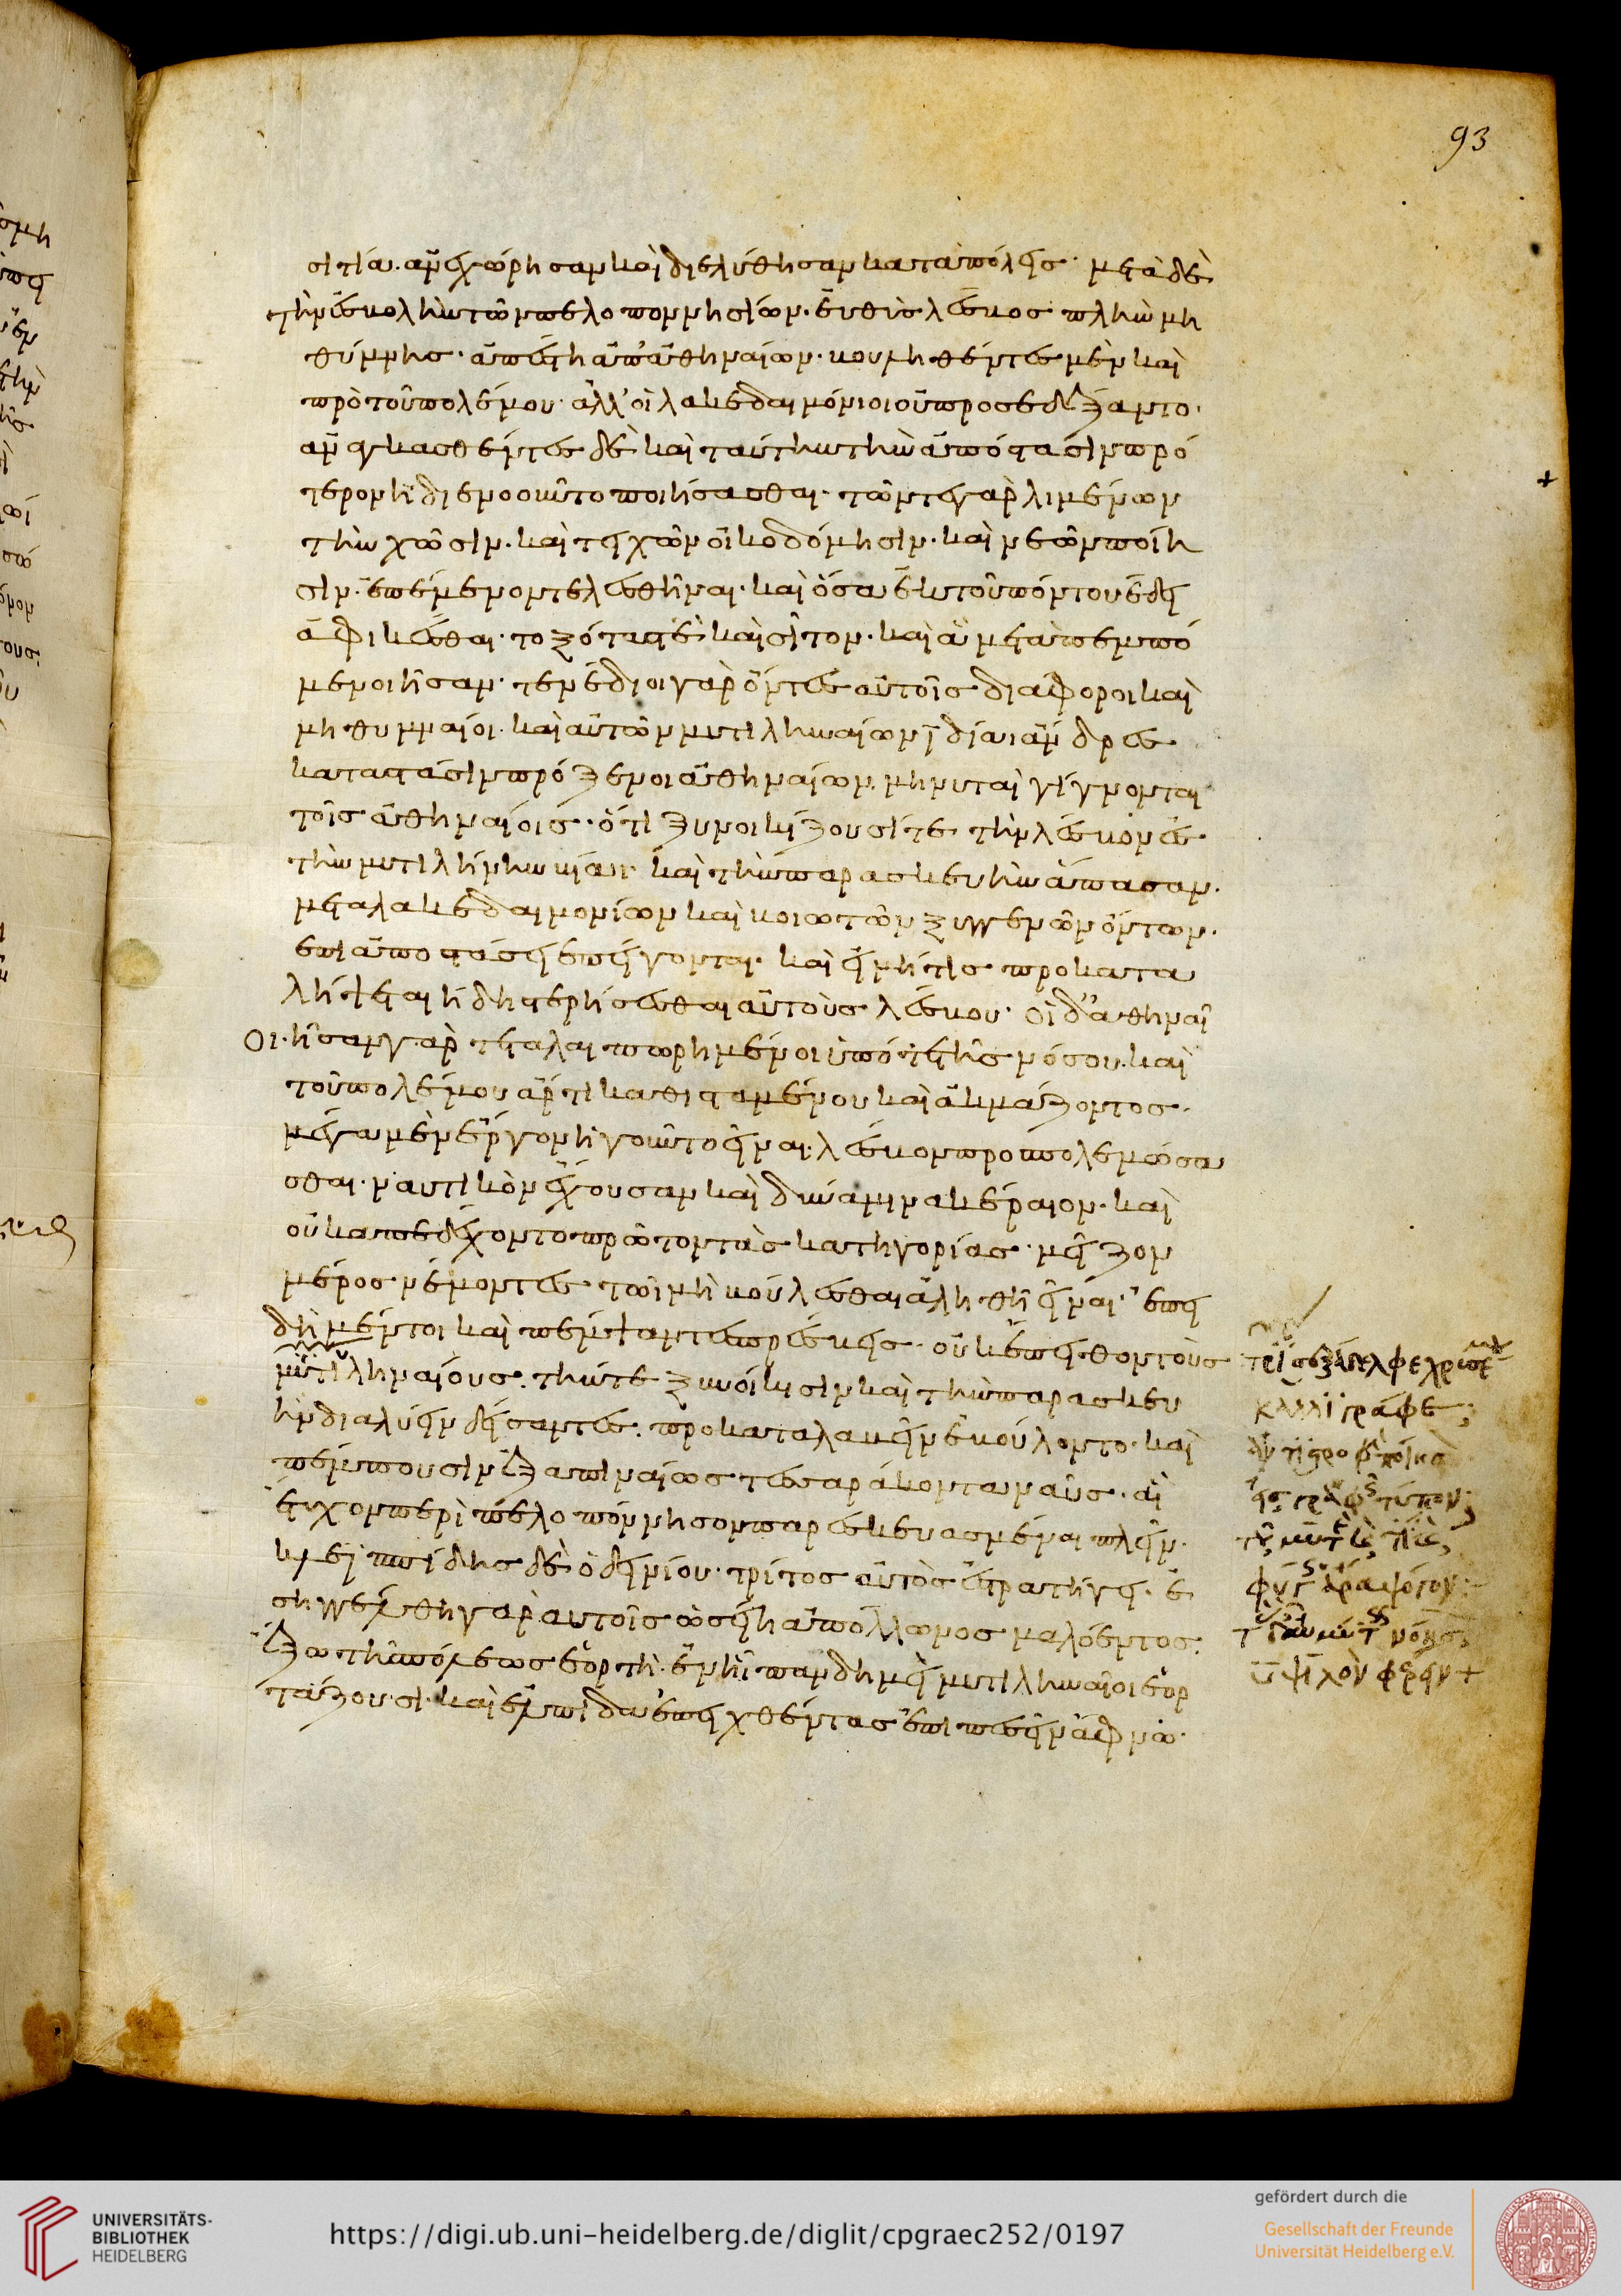 σιτία. ἀνεχώρησαν καὶ διελύθησαν κατὰ πόλεις· μετὰ δὲ
τὴν ἐσβολὴν τῶν πελοποννησίων. εὐθὺς λέσβος πλὴν μη
θύμνης. ἀπέστη ἀπ' ἀθηναίων. βουληθέντες μὲν καὶ
πρὸ τοῦ πολέμου· ἀλλ' οἱ λακεδαιμόνιοι οὐ προσεδέξαντο.
ἀναγκασθέντες δὲ καὶ ταύτην τὴν ἀπόστασιν πρό
τερον ἢ διενοοῦντο ποιήσασθαι· τῶν τε γὰρ λιμένων
τὴν χῶσιν. καὶ τειχῶν οἰκοδόμησιν. καὶ νεῶν ποίη
σιν. ἐπέμενον τελεσθῆναι. καὶ ὅσα ἐκ τοῦ πόντου ἔδει
ἀφικέσθαι. τοξότας τὲ καὶ σῖτον. καὶ ἃ μεταπεμπό
μενοι ἦσαν. τενέδιοι γὰρ ὄντες αὐτοῖς διάφοροι καὶ
μηθυμναίοι. καὶ αὐτῶν μυτιληναίων ἰδίαι ἄνδρες
κατα στάσιν πρόξενοι ἀθηναίων. μηνυταὶ γίγνονται
τοῖς ἀθηναίοις. ὅτι ξυνοικίζουσί τε τὴν λέσβον ἐς
τὴν μυτιλήνην βίαι. καὶ τὴν παρασκευὴν ἅπασαν.
μετα λακεδαιμονίων καὶ βοιωτῶν ξυγγενῶν ὄντων.
ἐπὶ ἀποστάσει ἐπείγονται. καὶ εἰ μή τις προκατα
λήψεται ἤδη στερήσεσθαι αὐτοὺς λέσβου. οἱ δ' ἀθηναῖ
οι. ἦσαν γὰρ τεταλαιπωρημένοι ὑπό τε τῆς νόσου. καὶ
τοῦ πολέμου ἄρτι καθισταμένου καὶ ἀκμάζοντος.
μέγα μὲν ἔργον ἡγοῦντο εἶναι. λέσβον προσπολεμώσα
σθαι. ναυτικὸν ἔχουσαν καὶ δύναμιν ακέραιον. καὶ
οὐκ απεδέχοντο πρῶτον τὰς κατηγορίας. μεῖζον
μέρος νέμοντες τῶι μὴ βούλεσθαι ἀληθῆ εἶναι. ἐπει
δὴ μέντοι καὶ πέμψαντες πρέσβεις. οὐκ ἔπειθον τοὺς
μυτιληναίους. τήν τε ξυνοίκισιν καὶ τὴν παρασκευ
ὴν διαλύειν δείσαντες. προκαταλαβεῖν ἐβούλοντο. καὶ
πέμπουσιν ἐξαπιναίως τεσσαράκοντα ναῦς. αἳ
ἔτυχον περὶ πελοπόννησον παρεσκευασμέναι πλεῖν.
κλεϊππίδης δὲ ὁ δεινίου. τρίτος αὐτὸς ἐστρατήγει. ἐ
σηγγέλθη γὰρ αυτοῖς ὡς εἴη ἀπόλλωνος μαλόεντος
ἔξω τῆς πόλεως ἑορτὴ. ἐν ἧι πανδημεὶ μυτιληναῖοι ἑορ
τάζουσι. καὶ ἐλπίδα ἐπειχθέντας ἐπιπεσεῖν ἄφνω.
καλλιγράφε
93
UNIVERSITÄTS-
BIBLIOTHEK
HEIDELBERG
https://digi.ub.uni-heidelberg.de/diglit/cpgraec252/0197
gefördert durch die
Gesellschaft der Freunde
Universität Heidelberg e.V.